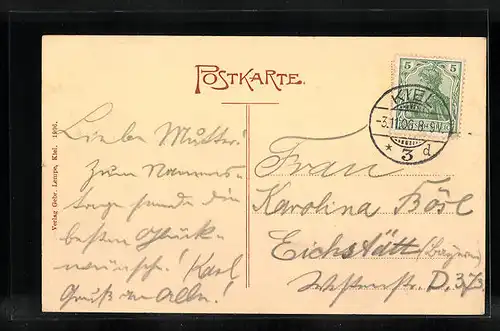 POSTKARTE.
5 5
KIEL
-3.11.06.8-9V.
* 3 d
Lieber Mutter!
Zum Namens-
tage sende die
besten Glück-
wünsche! Karl
Gruß an Alle!
Frau
Karolina Bösl
Eichstätt (Bayern)
D. 373
Verlag Gebr. Lempe, Kiel. 1906.